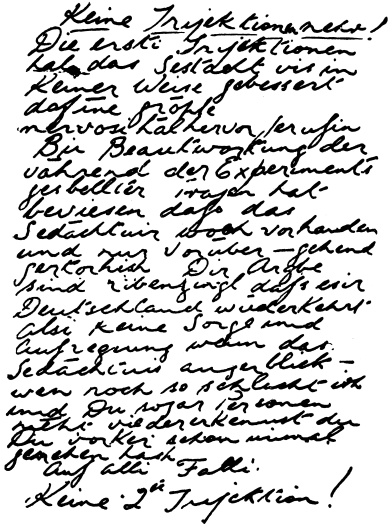 Keine Injektionen mehr!
Die erste Injektionen
hat das Gedächtnis in
Keiner Weise gebessert
dafür eine größte
nervosität hervorgerufen
Die Beantwortung der
während der Experiments
gestellter Fragen hat
bewiesen dass das
Gedächtnis noch vorhanden
und nur vorüber-gehend
gestört ist Die Ärzte
sind überzeugt dass es in
Deutschland wiederkehrt
Also keine Sorge und
Aufregung wenn das
Gedächtnis augenblick-
noch so schlecht ist
und Du sogar Personen
nicht wiedererkennst die
Du vorher schon einmal
gesehen hast
Auf alle Fälle
Keine 2te Injektion!